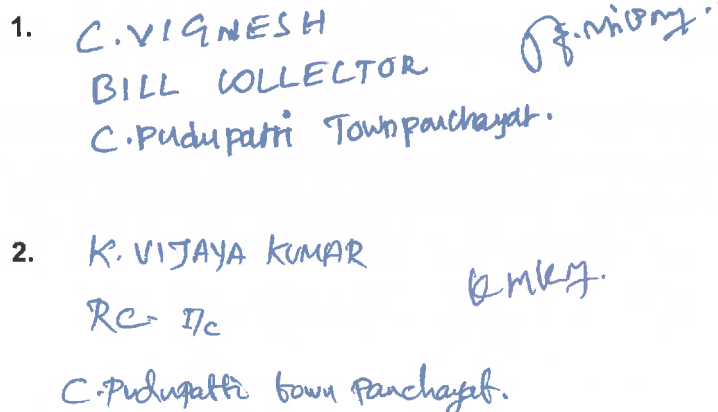 1. C. VIGNESH
BILL COLLECTOR
C. Pudupatti Townpanchayat.
2. K. VIJAYA KUMAR
RC I/c
C. Pudupatti town Panchayat.